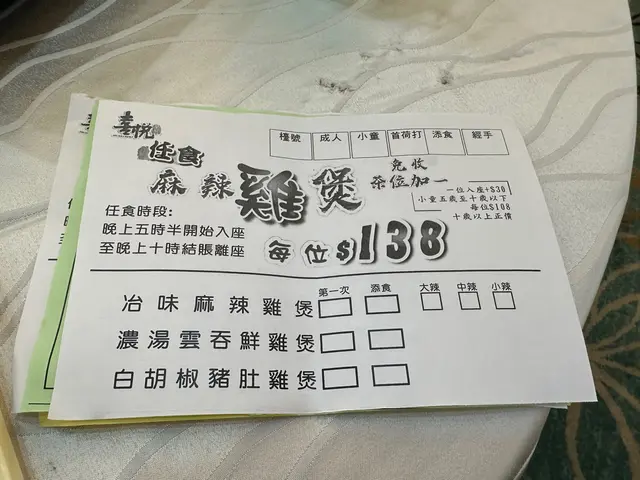 喜悅
任食
麻辣雞煲
檯號 成人 小童 首荷打 添食 經手
免收
茶位加一
一位入座+$30
小童五歲至十歲以下
每位$108
十歲以上正價
任食時段:
晚上五時半開始入座
至晚上十時結賬離座
每位$138
第一次 添食 大辣 中辣 小辣
冶味麻辣雞煲
濃湯雲吞鮮雞煲
白胡椒豬肚雞煲